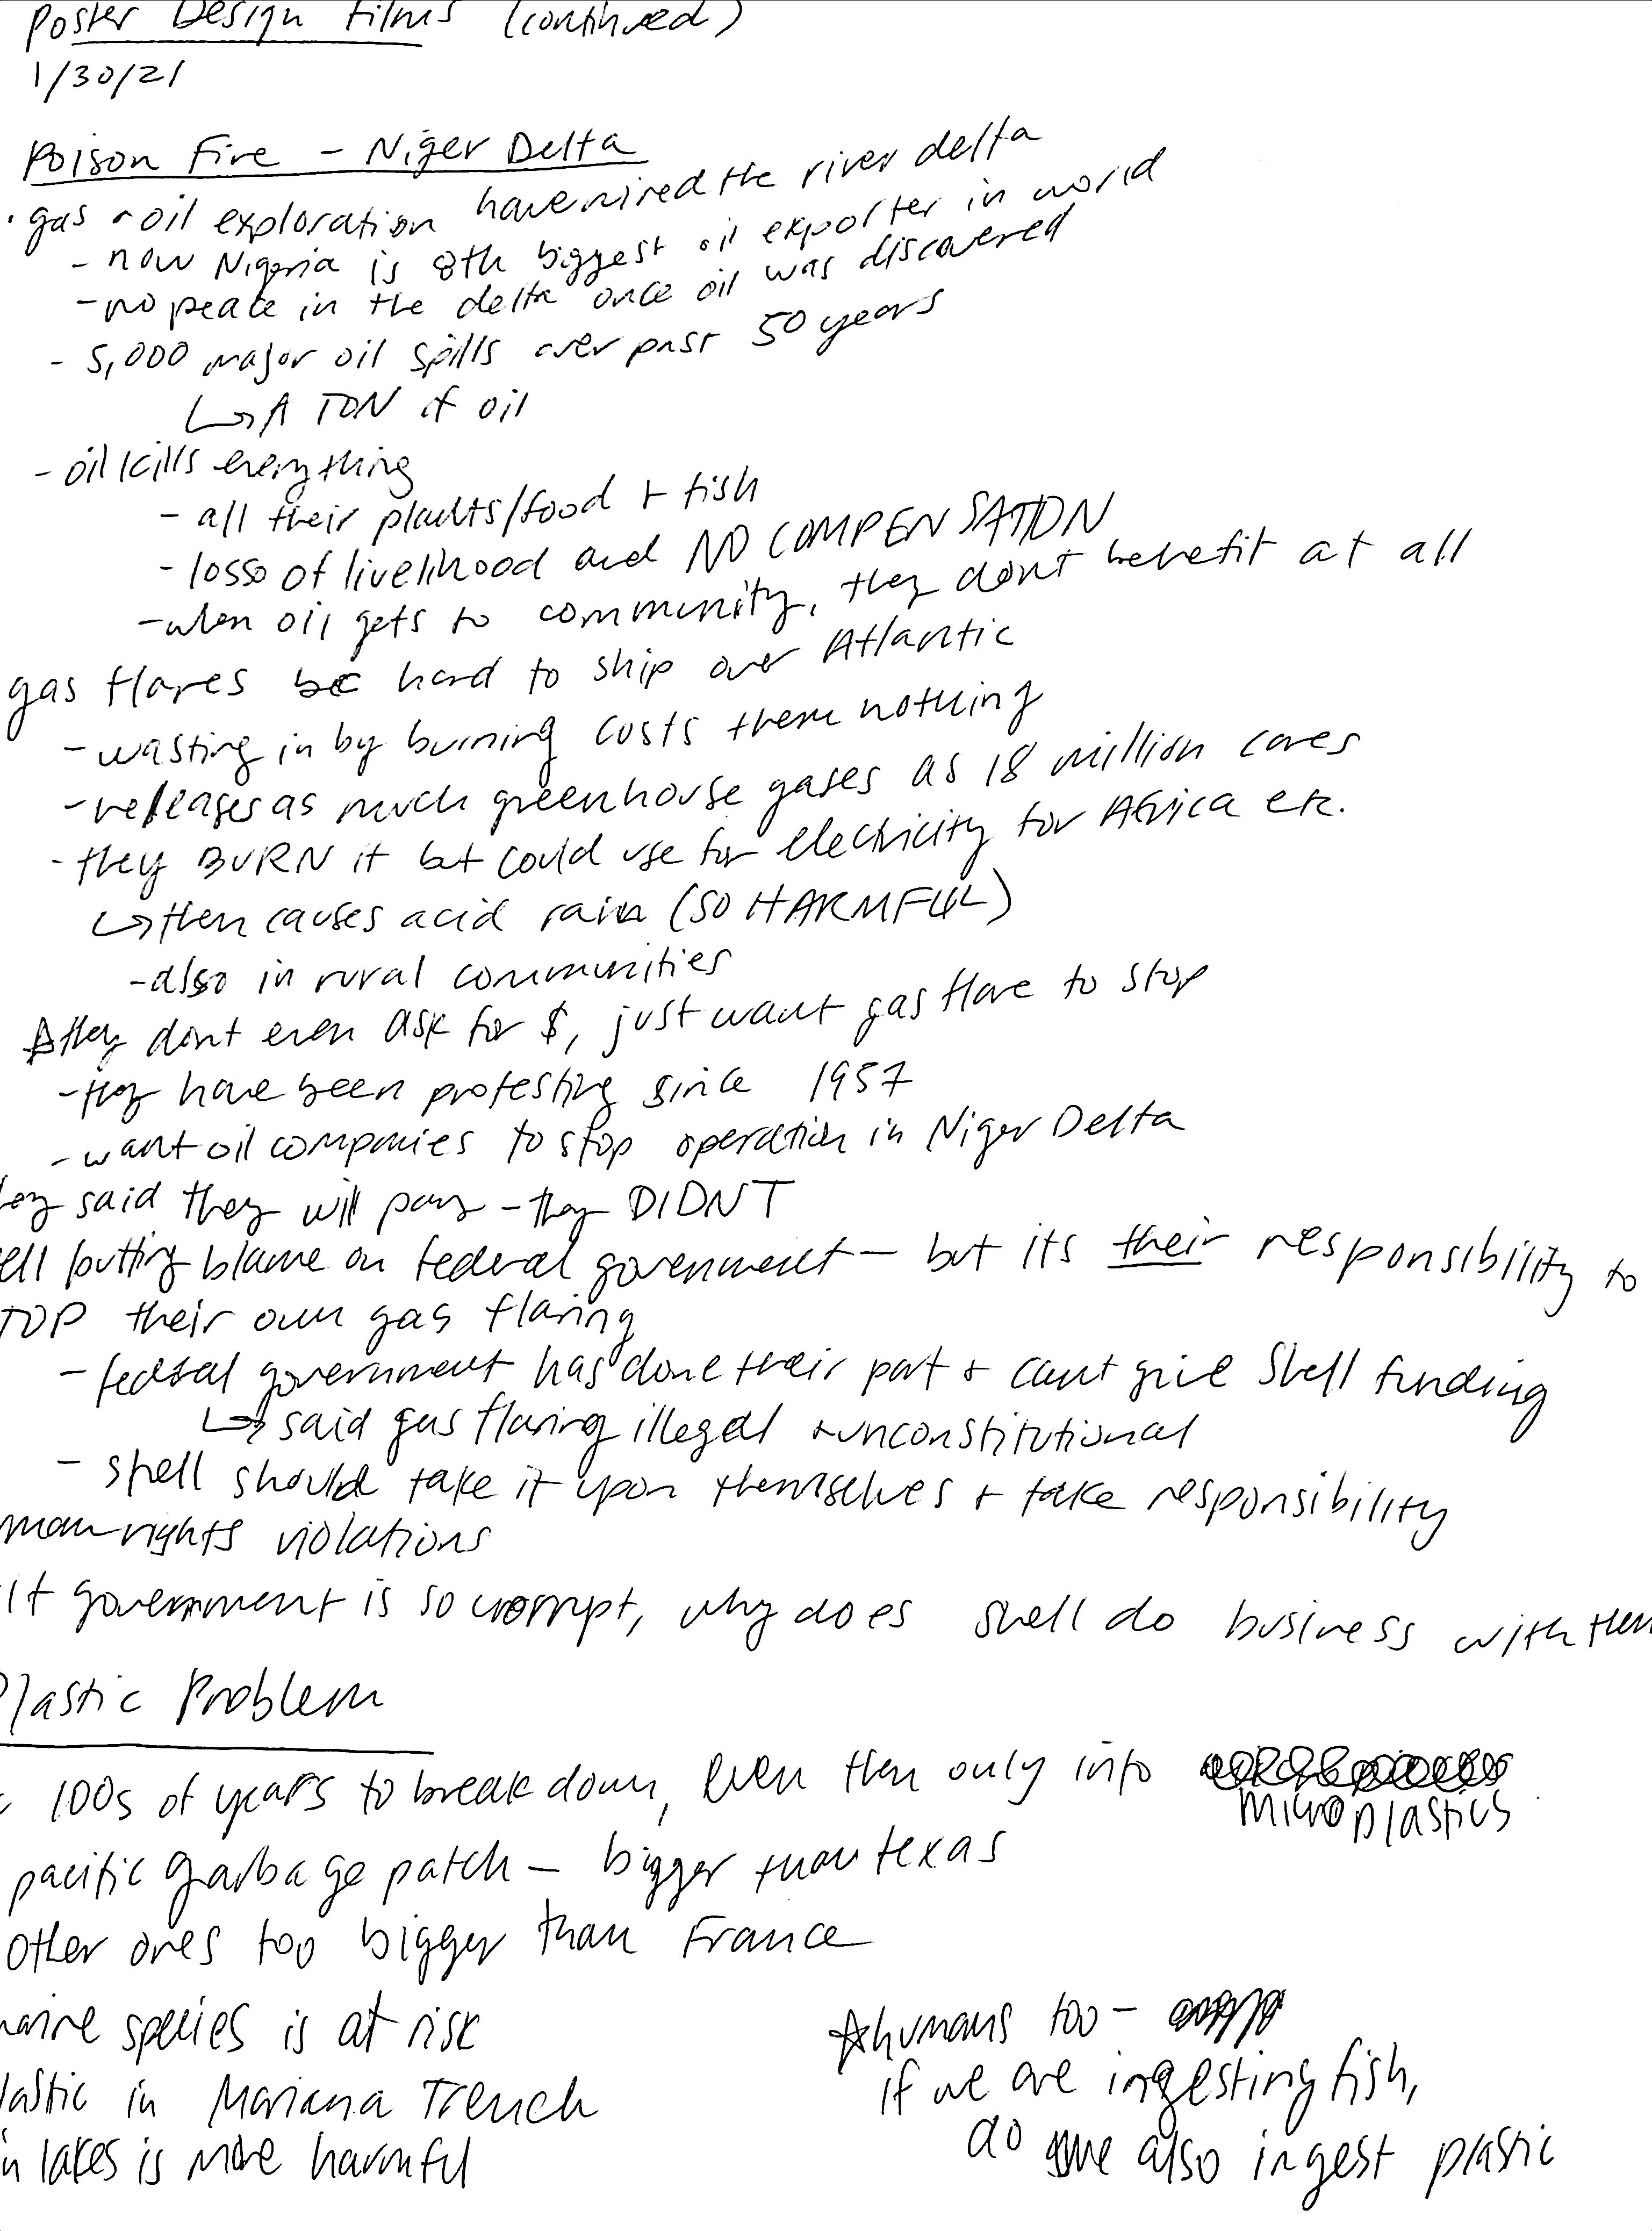 Poster Design Films (continued)
1/30/21
Poison Fire - Niger Delta
• gas + oil exploration have ruined the river delta
- now Nigeria is 8th biggest oil exporter in world
- no peace in the delta once oil was discovered
- 5,000 major oil spills over past 50 years
↳ A TON of oil
- oil kills everything
- all their plants/food + fish
- loss of livelihood and NO COMPENSATION
- when oil gets to community, they dont benefit at all
gas flares bc hard to ship over Atlantic
- wasting in by burning costs them nothing
- releases as much greenhouse gases as 18 million cares
- they BURN it but could use for electricity for Africa etc.
↳ then causes acid rain (SO HARMFUL)
- also in rural communities
☆ they dont even ask for $, just want gas flare to stop
- they have been protesting since 1957
- want oil companies to stop operation in Niger Delta
hey said they will pay - they DIDNT
ell putting blame on federal government - but its their responsibility to
TOP their own gas flaring
- federal government has done their part + cant give Shell funding
↳ said gas flaring illegal + unconstitutional
- shell should take it upon themselves + take responsibility
man rights violations
If government is so corrupt, why does shell do business with them
Plastic Problem
100s of years to break down, even then only into
microplastics
pacific garbage patch - bigger than texas
other ones too bigger than France
species is at risk
☆ humans too -
lastic in Mariana Trench
if we are ingesting fish,
n lakes is more harmful
do we also ingest plastic